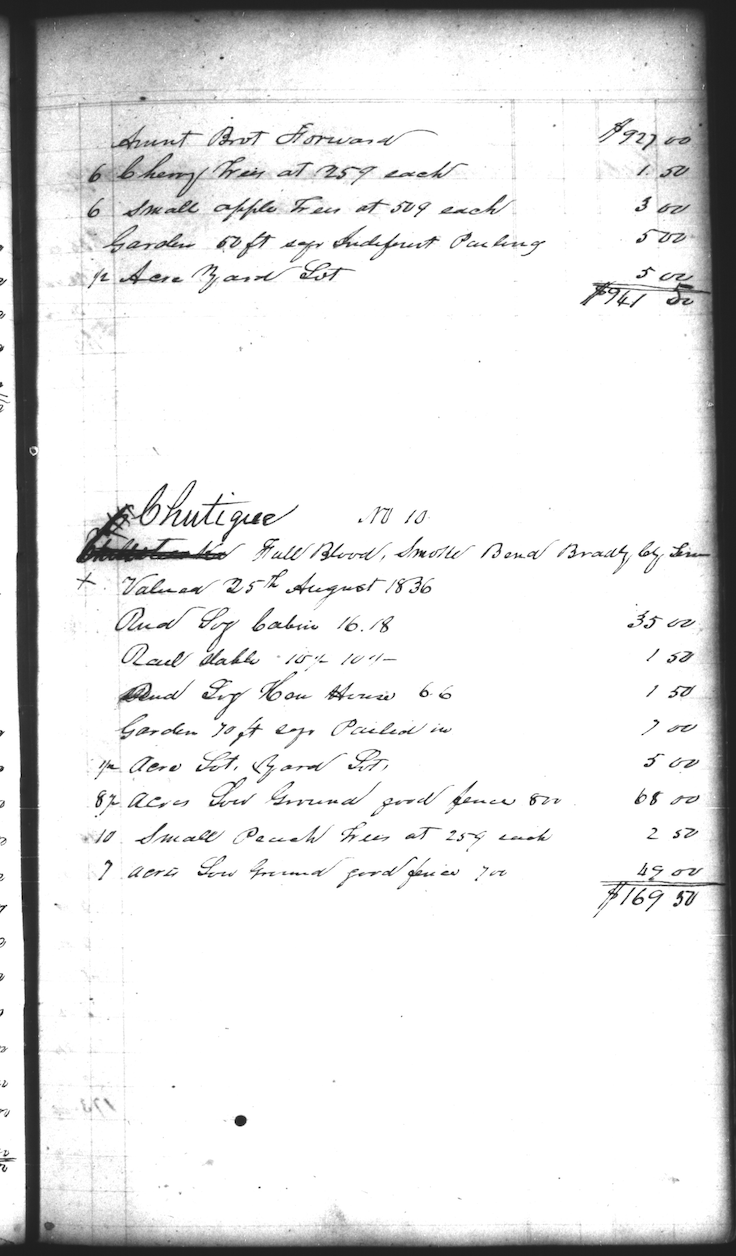 Amnt Brot Forward $927 00
6 Cherry Trees at 25¢ each 1 50
6 Small apple Trees at 50¢ each 3 00
Garden 50 ft sqr Indiferent Pailing 5 00
½ Acre Yard Lot 5 00
$941 50
Chutigee No 10
Full Blood, Smoke Bend Bradly Cty Tenn
+ Valued 25th August 1836
Rnd Log Cabin 16.18 35 00
Rail stable 10½ 10½ 1 50
Rnd Log Hen House 6.6 1 50
Garden 70 ft sqr Pailed in 7 00
½ Acre Lot. Yard Lot. 5 00
8½ Acres Low Ground good fence 800 68 00
10 Small Peach Trees at 25¢ each 2 50
7 acres Low Ground good fence 700 49 00
$169 50